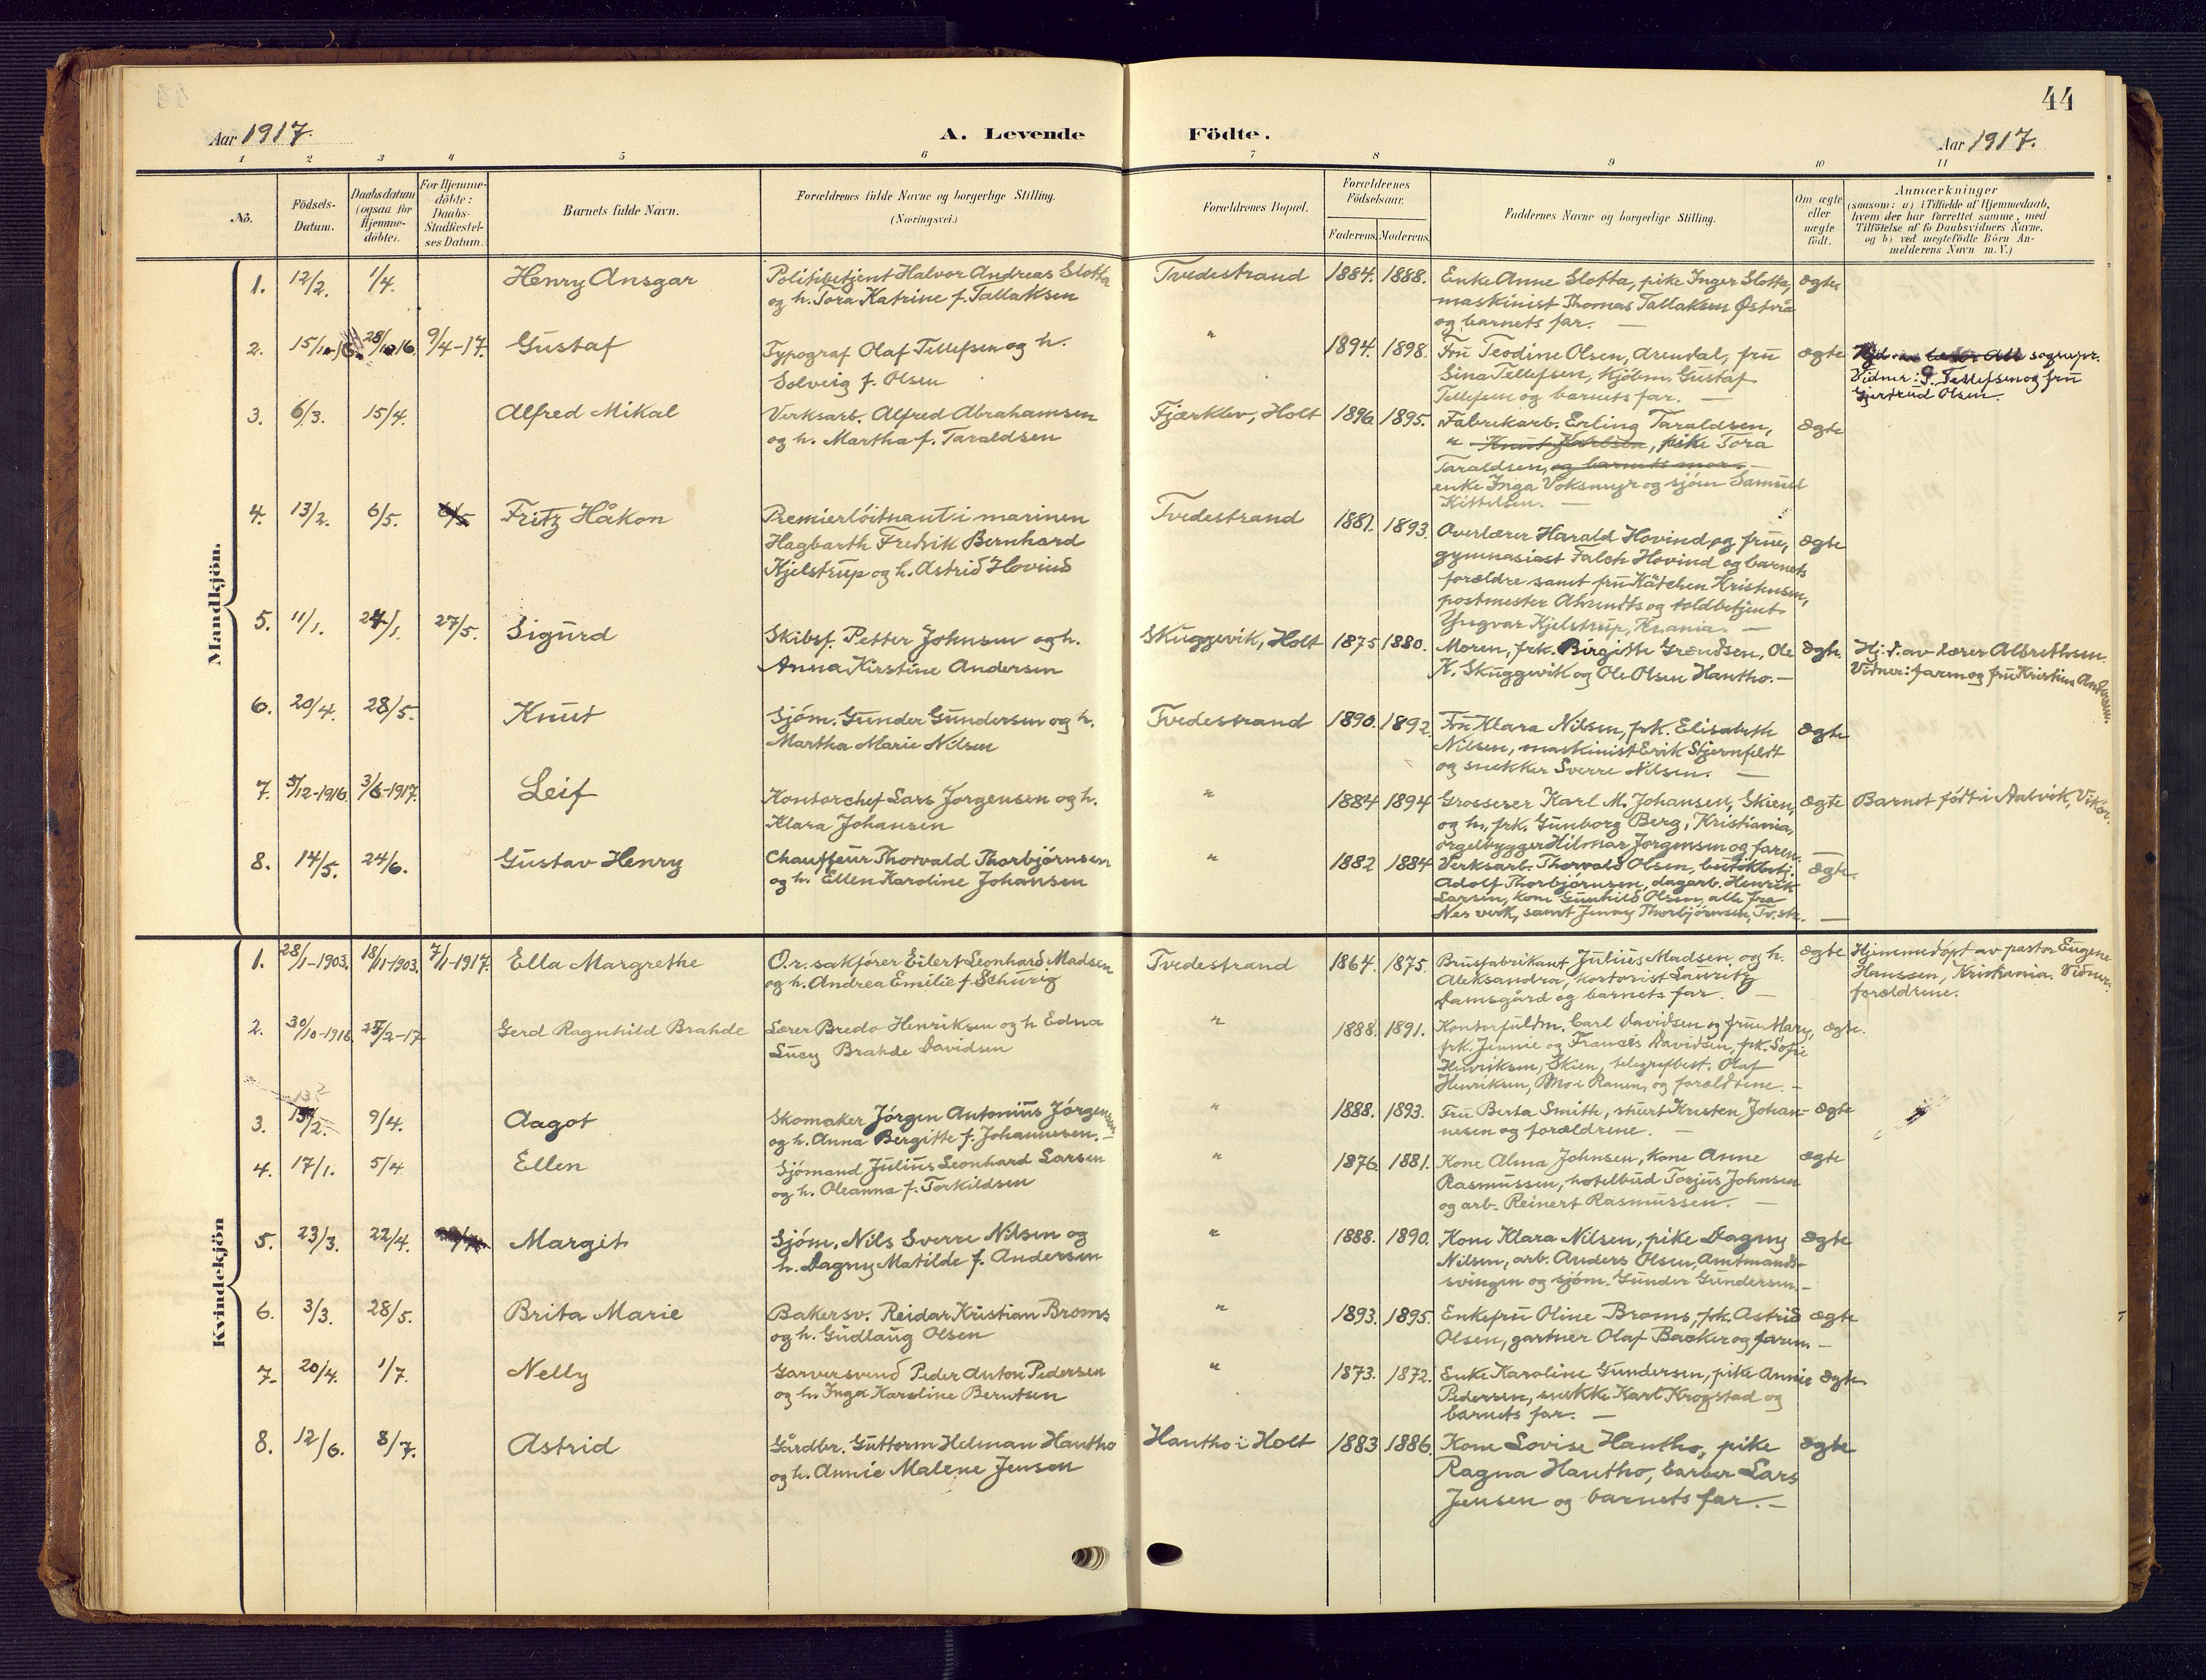 44
Aar 1917.
A. Levende Födte.
Aar 1917.
1 2 3 4 5 6 7 8 9 10 11
No.
Födsels-Datum.
Daabsdatum (ogsaa for Hjemme-döbte).
For Hjemme-döbte: Daabs-Stadfæstel-ses Datum.
Barnets fulde Navn.
Forældrenes fulde Navne og borgerlige Stilling.
(Næringsvei.)
Forældrenes Bopæl.
Forældrenes Födselsaar.
Faderens. Moderens.
Faddernes Navne og borgerlige Stilling.
Om ægte eller uægte födt.
Anmærkninger
(saasom: a) i Tilfælde af Hjemmedaab,
hvem der har forrettet samme, med
Tilföielse af to Daabsvidners Navne,
og b) ved uægtefödte Börn An-
melderens Navn m. V.)
Mandkjön.
1. 12/2. 1/4. Henry Ansgar
Politibetjent Halvor Andreas Slotta
og h. Tora Katrine f. Tallaksen
Tvedestrand 1884. 1888.
Enke Anne Slotta, pike Inger Slotta,
maskinist Thomas Tallaksen Østerå
og barnets far. —
ægte
2. 15/10-16. 28/10 16 9/4-17. Gustaf
Typograf Olaf Tellefsen og h.
Solveig f. Olsen
" 1894. 1898.
Fru Teodine Olsen, Arendal, fru
Sina Tellefsen, kjöbm. Gustaf
Tellefsen og barnets far. —
ægte
sognepr.
Vidner: Tellefsen og fru
Gjertrud Olsen.
3. 6/3. 15/4. Alfred Mikal
Verksarb. Alfred Abrahamsen
og h. Martha f. Taraldsen
Fjærklev, Holt 1896 1895.
Fabrikarb. Erling Taraldsen,
" Knut Karlsen, pike Tora
Taraldsen, og barnets mor. —
enke Inga Voksmyr og sjöm Samuel
Kittelsen. —
ægte
4. 13/2. 6/5. 6/5 Fritz Håkon
Premierlöitnant i marinen
Hagbarth Fredrik Bernhard
Kjelstrup og h. Astrid Hovind
Tvedestrand 1881. 1893.
Overlærer Harald Hovind og frue,
gymnasiast Falch Hovind og barnets
forældre samt fru Kätchen Kristensen,
postmester Ahrendts og toldbetjent
Yngvar Kjelstrup, Kr.ania. —
ægte
5. 11/1. 24/1. 27/5. Sigurd
Skibsf. Petter Johnsen og h.
Anna Kirstine Andersen
Skuggevik, Holt 1875 1880.
Moren, frk. Birgitte Grændsen, Ole
K. Skuggevik og Ole Olsen Hantho. —
ægte.
Hj: d. av lærer Albrethsen.
Vidner: faren og fru Kristine Andersen.
6. 20/4. 28/5. Knut
Sjöm. Gunder Gundersen og h.
Martha Marie Nilsen
Tvedestrand 1890. 1892.
Fru Klara Nilsen, frk. Elisabeth
Nilsen, maskinist Erik Stjernfeldt
og snekker Sverre Nilsen. —
ægte
7. 5/12-1916. 3/6-1917. Leif
Kontorchef Lars Jorgensen og h.
Klara Johansen
" 1884 1894
Grosserer Karl M. Johansen, Skien,
og h., frk. Gunborg Berg, Kristiania,
orgelbygger Hilmar Jorgensen og faren.
ægte
Barnet födt i Aalvik, Vikør.
8. 14/5. 24/6. Gustav Henry
Chauffeur Thorvald Thorbjörnsen
og h. Ellen Karoline Johansen
" 1882 1884
Verksarb. Thorvald Olsen, butikbetj.
Adolf Thorbjörnsen, dagarb. Henrik
Larsen, kone Gunhild Olsen, alle fra
Nes verk, samt Jenny Thorbjörnsen, Tv.str. —
ægte.
Kvindekjön
1. 28/1-1903. 18/11-1903. 7/1-1917. Ella Margrethe
O.r. sakförer Eilert Leonhard Madsen
og h. Andrea Emilie f. Schurig
Tvedestrand 1864. 1875.
Brusfabrikant Julius Madsen og h.
Aleksandra, kontorist Lauritz
Damsgård og barnets far. —
ægte
Hjemmedöpt av pastor Eugene
Hanssen, Kristiania. Vidner:
forældrene.
2. 30/10-1916. 25/2-17 Gerd Ragnhild Brahde
Lærer Bredo Henriksen og h Edna
Lucy Brahde Davidsen
" 1888. 1891.
Kontorfuldm. Carl Davidsen og frue Mary,
frk. Jennie og Frances Davidsen, frk. Sofie
Henriksen, Skien, telegrafbest. Olaf
Henriksen, Mo i Ranen, og forældrene. —
ægte.
13?
3. 13/2. 9/4. Aagot
Skomaker Jörgen Antonius Jörgensen
og h. Anna Bergitte f. Johannesen. —
" 1888. 1893.
Fru Berta Smith, stuert Kristen Johan-
nesen og forældrene. —
ægte
4. 17/1. 5/4 Ellen
Sjömand Julius Leonhard Larsen
og h. Oleanna f. Terkildsen
" 1876. 1881.
Kone Alma Johnsen, kone Anne
Rasmussen, hotelbud Torjus Johnsen
og arb. Reinert Rasmussen. —
ægte
5. 23/3. 22/4. Margit
Sjöm. Nils Sverre Nilsen og
h. Dagny Matilde f. Andersen
" 1888. 1890.
Kone Klara Nilsen, pike Dagny
Nilsen, arb. Anders Olsen, Amtmands-
svingen og sjöm. Gunder Gundersen. —
ægte
6. 3/3. 28/5. Brita Marie
Bakersv. Reidar Kristian Broms
og h. Gudlaug Olsen
" 1893. 1895.
Enkefru Oline Broms, frk. Astrid
Olsen, gartner Olaf Backer og faren. —
ægte
7. 20/4. 1/7. Nelly
Garversvend Peder Anton Pedersen
og h. Inga Karoline Berntsen
" 1873. 1872.
Enke Karoline Gundersen, pike Annie
Pedersen, snekke Karl Krogstad og
barnets far. —
ægte.
8. 12/6. 8/7. Astrid
Gårdbr. Guttorm Helman Hantho
og h. Annie Malene Jensen
Hantho i Holt 1883 1886.
Kone Lovise Hantho, pike
Ragna Hantho, barber Lars
Jensen og barnets far. —
ægte